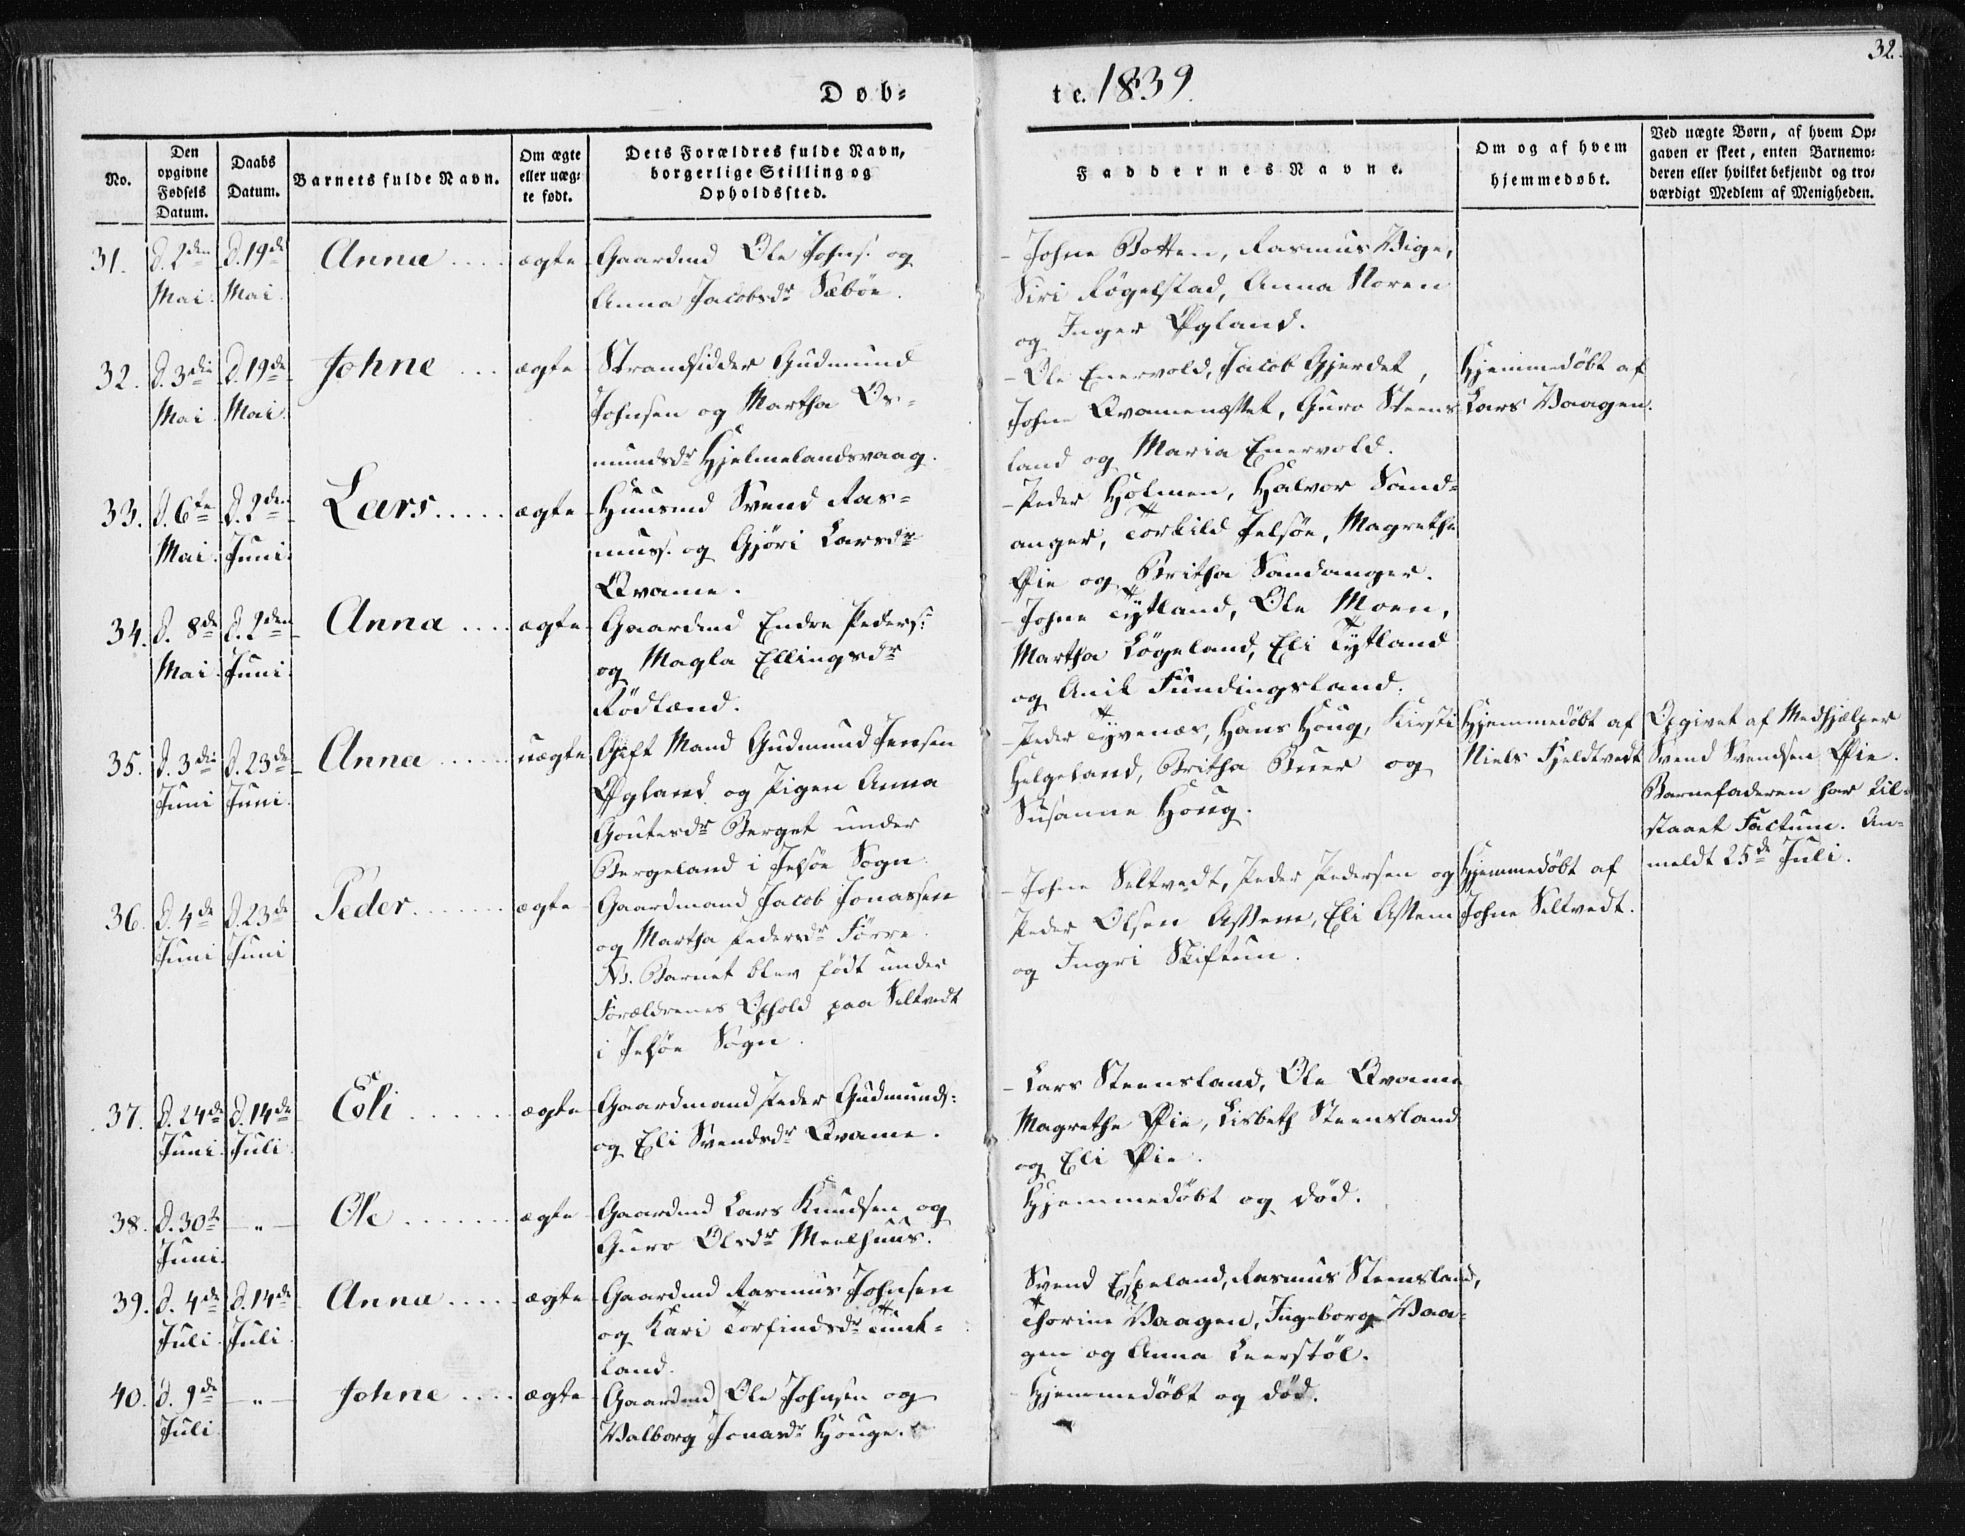 32.
Døb=
te. 1839.
No.
Den opgivne Fødsels Datum.
Daabs Datum.
Barnets fulde Navn.
Om ægte eller uæg= te født.
Dets Forældres fulde Navn, borgerlige Stilling og Opholdssted.
Faddernes Navne.
Om og af hvem hjemmedøbt.
Ved uægte Børn, af hvem Op= gaven er skeet, enten Barnemo= deren eller hvilket bekjendt og tro= værdigt Medlem af Menigheden.
31. d. 2den Mai. d. 19de Mai. Anna .... ægte
Gaardmd Ole Johns. og
Anna Jacobsdr Sæbøe.
- Johne Botten, Rasmus Vige,
Siri Røgelstad, Anna Noren
og Inger Øgland.
32. d. 3die Mai. d. 19de Mai. Johne ... ægte
Strandsidder Gudmund
Johnsen og Martha Os=
mundsdr Hjelmelandsvaag.
- Ole Enervold, Jacob Gjerdet,
Johne Qvamenæsset, Guro Steens
land og Maria Enervold.
Hjemmedøbt af
Lars Vaagen.
33. d. 6te Mai. d. 2den Juni. Lars ..... ægte
Huusmd Svend Ras=
muss. og Gjøri Larsdr
Qvame.
- Peder Holmen, Halvor Sand=
anger, Torkild Jelsøe, Magrethe
Øie og Britha Sandanger.
34. d. 8de Mai. d. 2den Juni. Anna .... ægte
Gaardmd Endre Peders.
og Magla Ellingsdr
Rødland.
- Johne Tytland, Ole Moen,
Martha Løgeland, Eli Tytland
og Anik Fundingsland.
35. d. 3die Juni d. 23de Juni. Anna ...... uægte
Gift Mand Gudmund Jensen
Øgland og Pigen Anna
Goutesdr Berget under
Bergeland i Jelsøe Sogn.
- Peder Tyvenæs, Hans Houg, Kirsti
Helgeland, Britha Buer og
Susanne Houg.
Hjemmedøbt af
Niels Fjeldtvedt
Opgivet af Medhjælper
Svend Svendsen Øie.
Barnefaderen har til=
staaet Factum. An=
meldt 25de Juli.
36. d. 4de Juni d. 23de Juni Peder ....... ægte
Gaardmand Jacob Jonassen
og Martha Pedersdr Førre.
NB. Barnet blev født under
Forældrenes Ophold paa Seltvedt
i Jelsøe Sogn.
- Johne Seltvedt, Peder Pedersen og
Peder Olsen Østem, Eli Østem
og Ingri Skiftun.
Hjemmedøbt af
Johne Seltvedt.
37. d. 24de Juni. d. 14de Juli. Eli ...... ægte
Gaardmand Peder Gudmunds:
og Eli Svendsdr Qvame.
- Lars Steensland, Ole Qvame
Magrethe Øie, Lisbeth Steensland
og Eli Øie.
38. d. 30te Juni. — " — Ole ....... ægte
Gaardmd Lars Knudsen og
Guro Olsdr Meelhuus.
Hjemmedøbt og død.
39. d. 4de Juli. d. 14de Juli. Anna ..... ægte
Gaardmd Rasmus Johnsen
og Kari Torfindsdr Tunk=
land.
Svend Espeland, Rasmus Steensland,
Thorine Vaagen, Ingeborg Vaa=
gen og Anna Leerstøl.
40. d. 9de Juli — " — Johne .... ægte
Gaardmd Ole Johnsen og
Valborg Jonasdr Houge.
Hjemmedøbt og død.